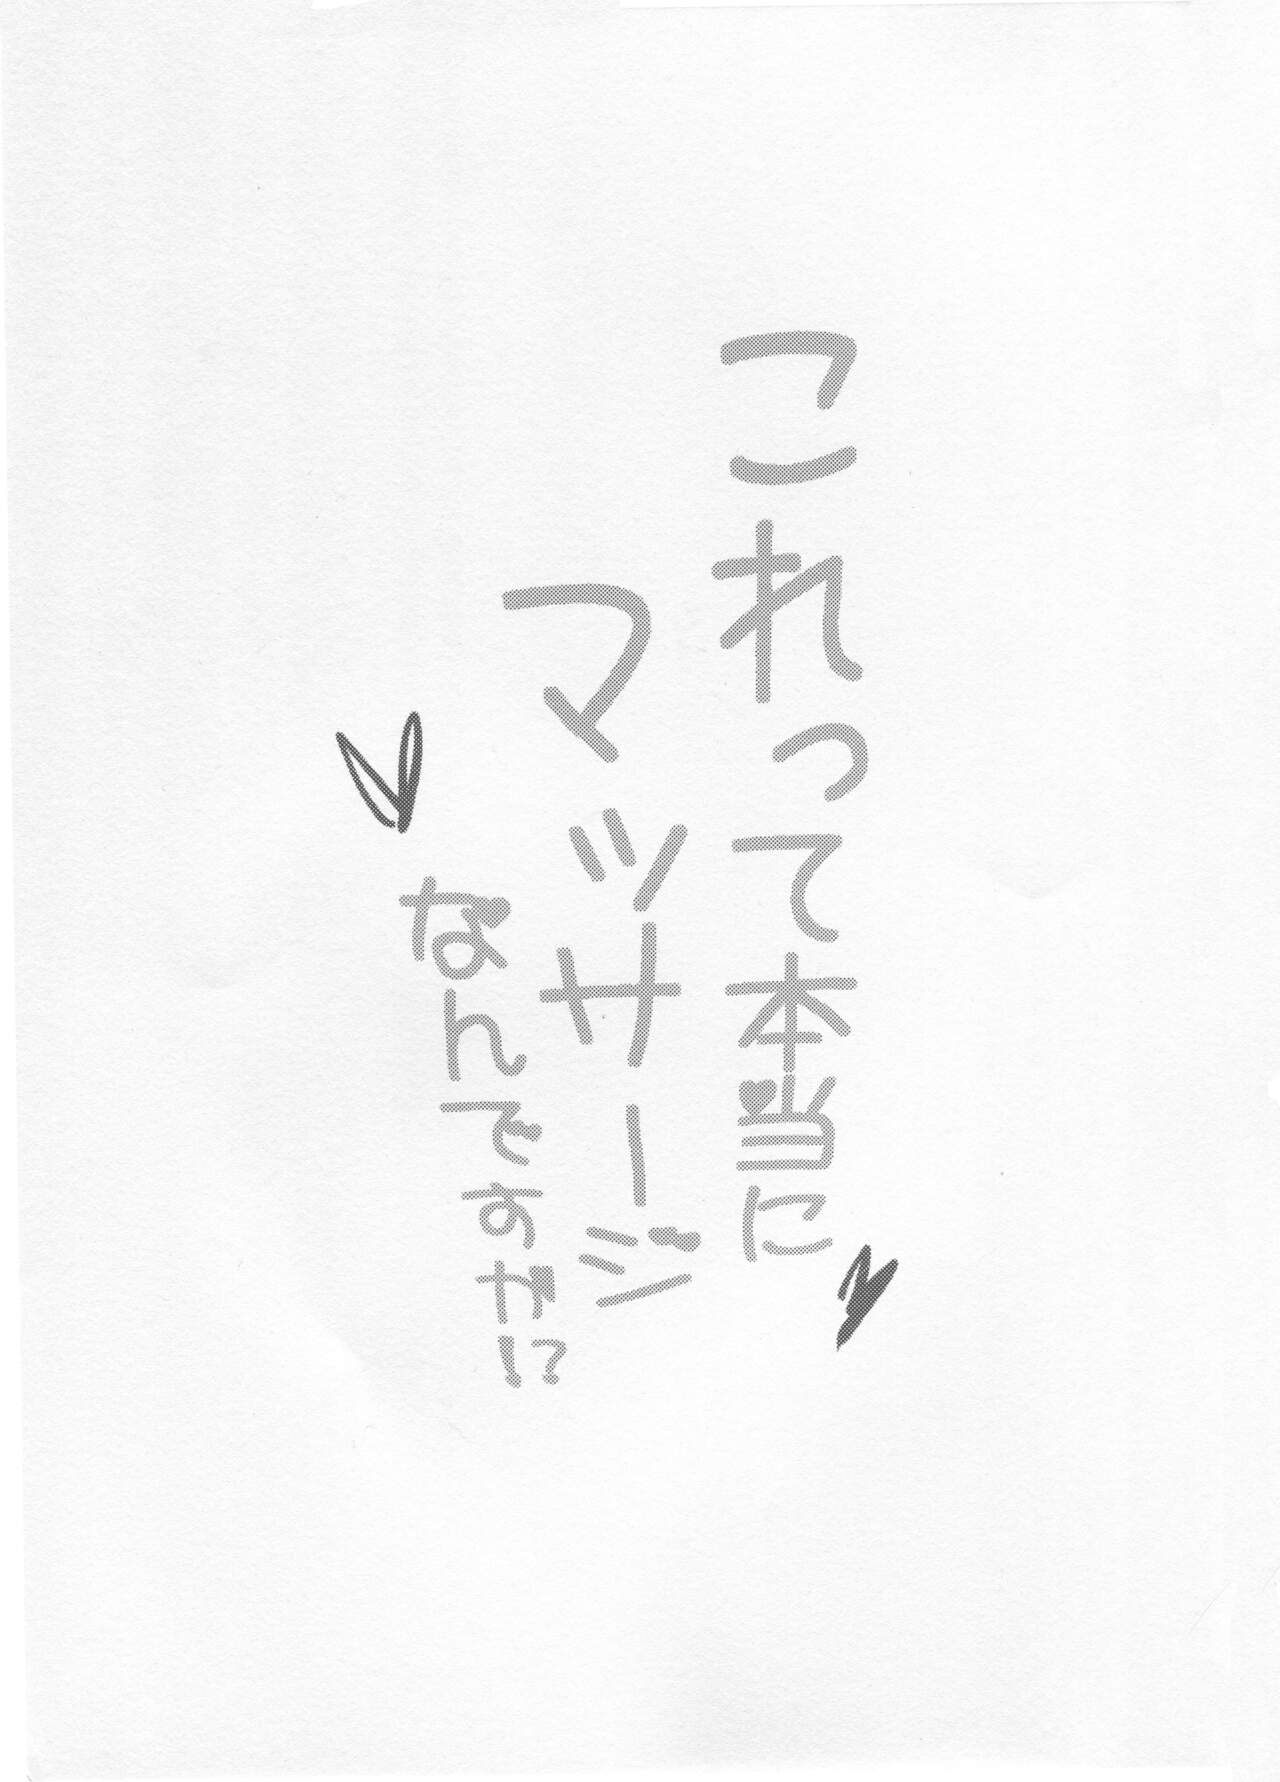 これって本当に
マッサージ
なんですか!?